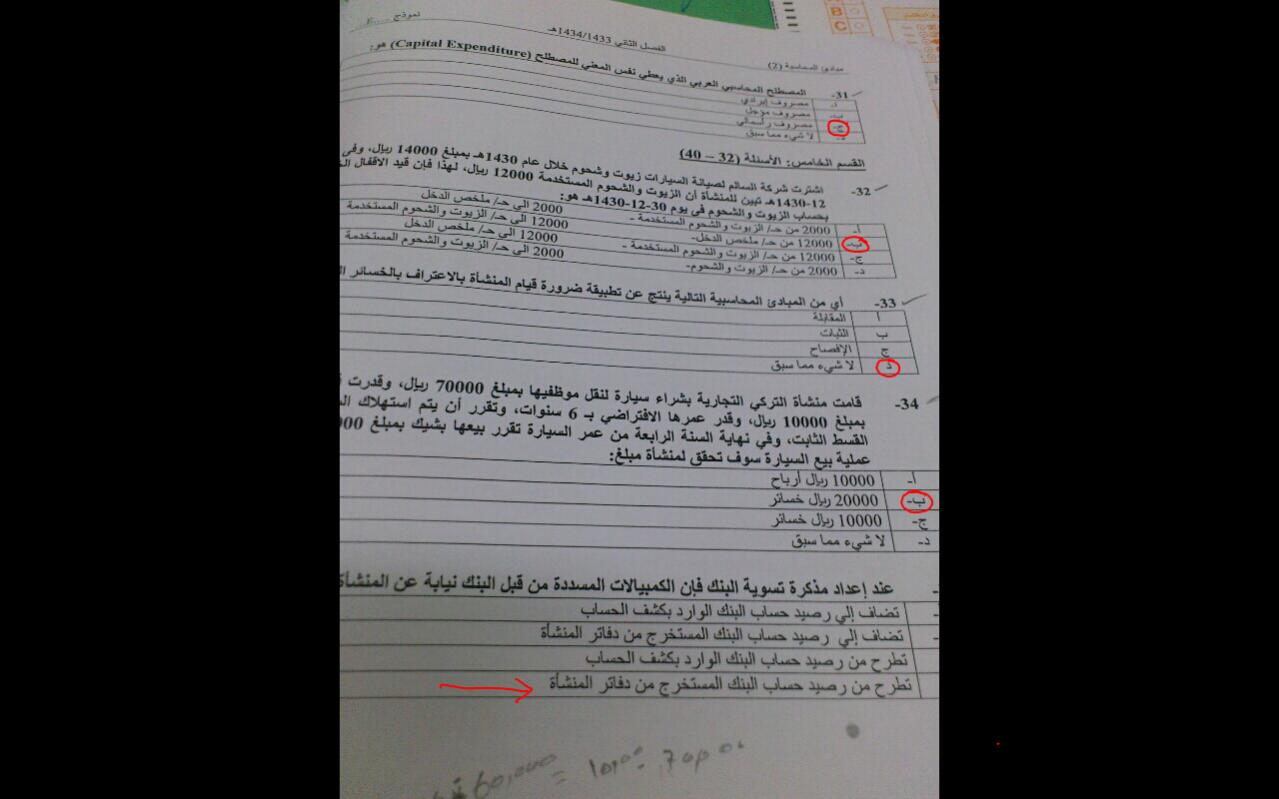 B
C
نموذج
الفصل الثاني 1434/1433هـ
مبادئ المحاسبة (2)
31- المصطلح المحاسبي العربي الذي يعطي نفس المعني للمصطلح (Capital Expenditure) هو:
أ- مصروف إيرادي
ب- مصروف مؤجل
ج- مصروف رأسمالي
د- لا شيء مما سبق
القسم الخامس: الأسئلة (32 – 40)
32- اشترت شركة السالم لصيانة السيارات زيوت وشحوم خلال عام 1430هـ بمبلغ 14000 ريال، وفى
12-1430هـ تبين للمنشأة أن الزيوت والشحوم المستخدمة 12000 ريال، لهذا فإن قيد الاقفال
بحساب الزيوت والشحوم في يوم 30-12-1430هـ هو:
أ- 2000 من حـ/ الزيوت والشحوم المستخدمة - 2000 الى حـ/ ملخص الدخل
ب- 12000 من حـ/ ملخص الدخل- 12000 الى حـ/ الزيوت والشحوم المستخدمة
ج- 12000 من حـ/ الزيوت والشحوم المستخدمة - 12000 الى حـ/ ملخص الدخل
د- 2000 من حـ/ الزيوت والشحوم- 2000 الى حـ/ الزيوت والشحوم المستخدمة
33- أي من المبادئ المحاسبية التالية ينتج عن تطبيقة ضرورة قيام المنشأة بالاعتراف بالخسائر
أ المقابلة
ب الثبات
ج الإفصاح
د لا شيء مما سبق
34- قامت منشأة التركي التجارية بشراء سيارة لنقل موظفيها بمبلغ 70000 ريال، وقدرت
بمبلغ 10000 ريال، وقدر عمرها الافتراضي بـ 6 سنوات، وتقرر أن يتم استهلاك
القسط الثابت، وفي نهاية السنة الرابعة من عمر السيارة تقرر بيعها بشيك بمبلغ
عملية بيع السيارة سوف تحقق لمنشأة مبلغ:
أ- 10000 ريال أرباح
ب- 20000 ريال خسائر
ج- 10000 ريال خسائر
د- لا شيء مما سبق
عند إعداد مذكرة تسوية البنك فإن الكمبيالات المسددة من قبل البنك نيابة عن المنشأة
تضاف إلي رصيد حساب البنك الوارد بكشف الحساب
تضاف إلي رصيد حساب البنك المستخرج من دفاتر المنشأة
تطرح من رصيد حساب البنك الوارد بكشف الحساب
تطرح من رصيد حساب البنك المستخرج من دفاتر المنشأة
60,000 =